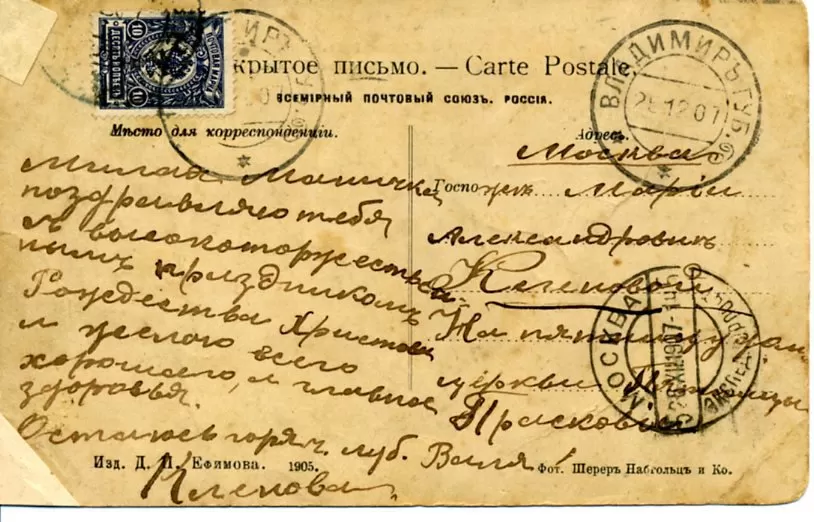 10 10
ДЕСЯТЬ КОП.
крытое письмо. — Carte Postale.
ВСЕМІРНЫЙ ПОЧТОВЫЙ СОЮЗЪ. РОССІЯ.
ВЛАДИМИРЪ ГУБ.
25.12.07
Мѣсто для корреспонденціи.
Милая Маничка
поздравляю тебя
съ высокоторжествен
нымъ праздникомъ
Рождества Христова
и желаю всего
хорошаго, и главное
здоровья.
Остаюсь горяч. люб. Валя
Кленова
Адресъ.
Москва
Госпожѣ Маріи
Александровнѣ
Кленовой
На пятницкую
церкви Пятницы
Прасковіи
МОСКВА
Изд. Д. П. Ефимова. 1905.
Фот. Шереръ Набгольцъ и Ко.